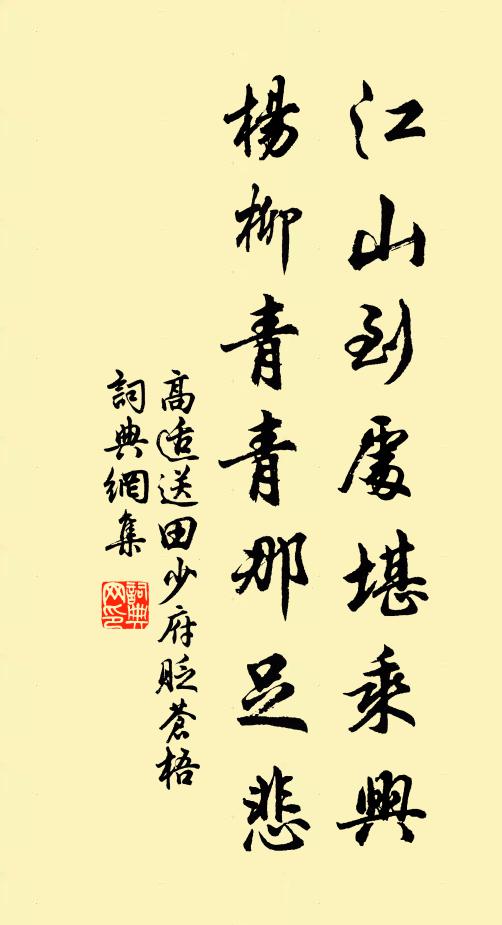 江山到處堪乘興
楊柳青青那足悲
高适送田少府貶蒼梧
詞典網集
詞典網印